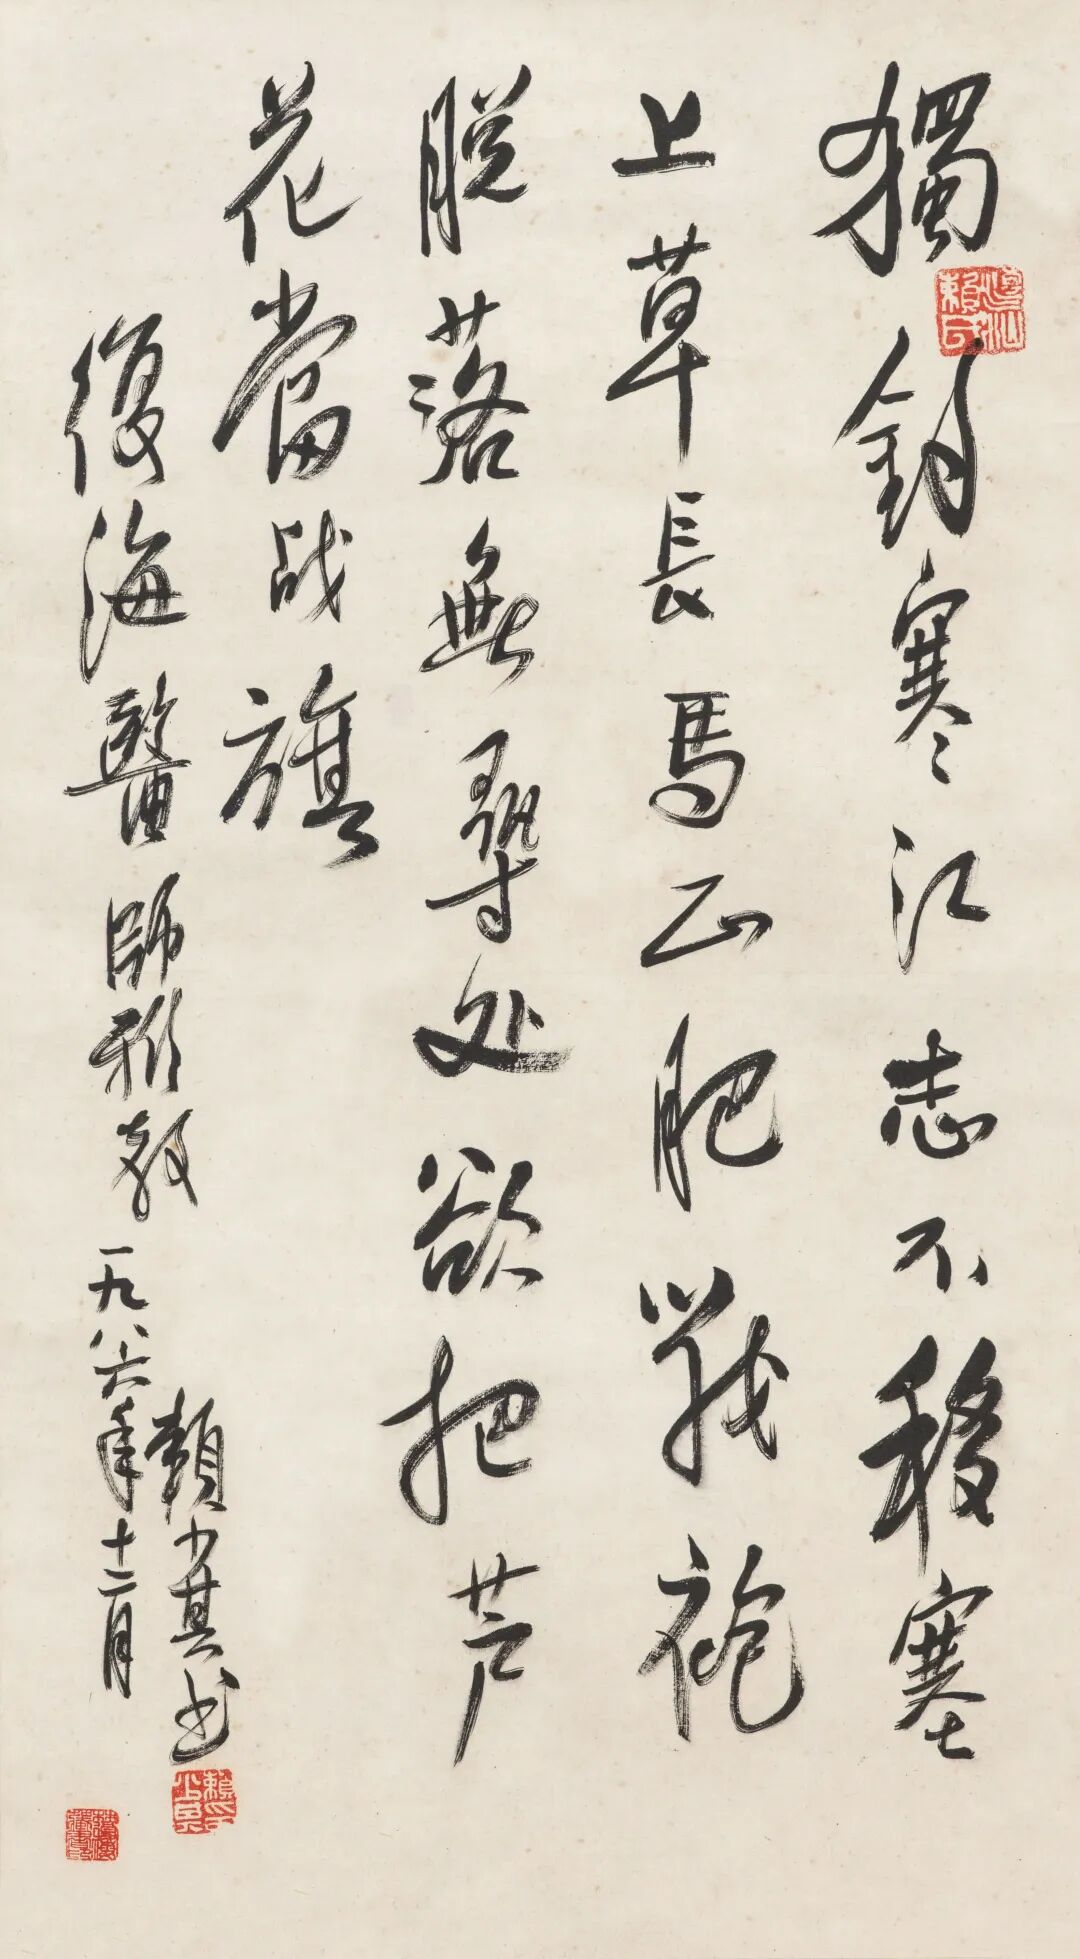 獨釣寒江志不移塞
上草長馬正肥戰袍
脫落無尋处欲把芦
花當战旗
復海醫師雅教
一九八六年十二月
賴少其书